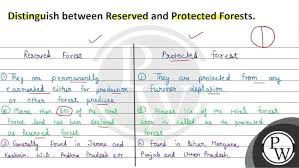 Distinguish between Reserved and Protected Forests.
Reserved Forest
Protected Forest
① They are permanently
earmarked either for production
or other forest produce
② More than 50% of the total
forest land has been declared
as reserved forest
③ Generally found in Jammu and
Kashmir, W.B, Andhra Pradesh etc.
① They are protected from any
further depletion
② Almost 1/3 of the total forest
area is called as the protected
forest
③ Found in Bihar, Haryana,
Punjab and Uttar Pradesh.
P
W